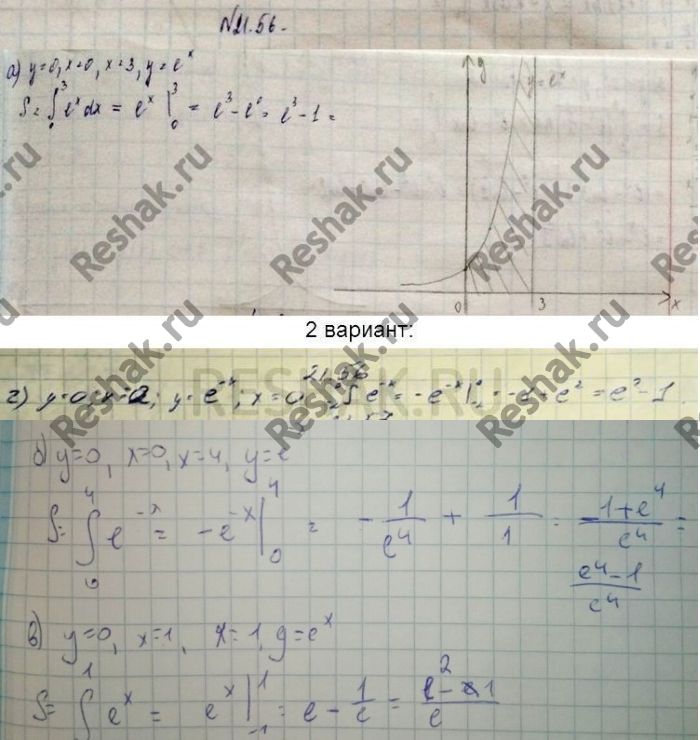 №21.56.
а) y=0, x=0, x=3, y=e^x
S = ∫₀³ e^x dx = e^x |₀³ = e³ - e⁰ = e³ - 1 =
y
y=e^x
0 3 x
Reshak.ru
2 вариант:
21.56
г) y=0; x=-2; y=e^-x; x=0
= -e^-x |
= e² - 1
RESHAK.RU
б) y=0, x=0, x=4, y=e
S= ∫₀⁴ e^-x = -e^-x |₀⁴ = -1/e⁴ + 1/1 = -1+e⁴/e⁴ =
e⁴-1/e⁴
в) y=0, x=1, x=1, y=e^x
S= ∫¹ e^x = e^x |₋₁¹ = e - 1/e = e²-1/e